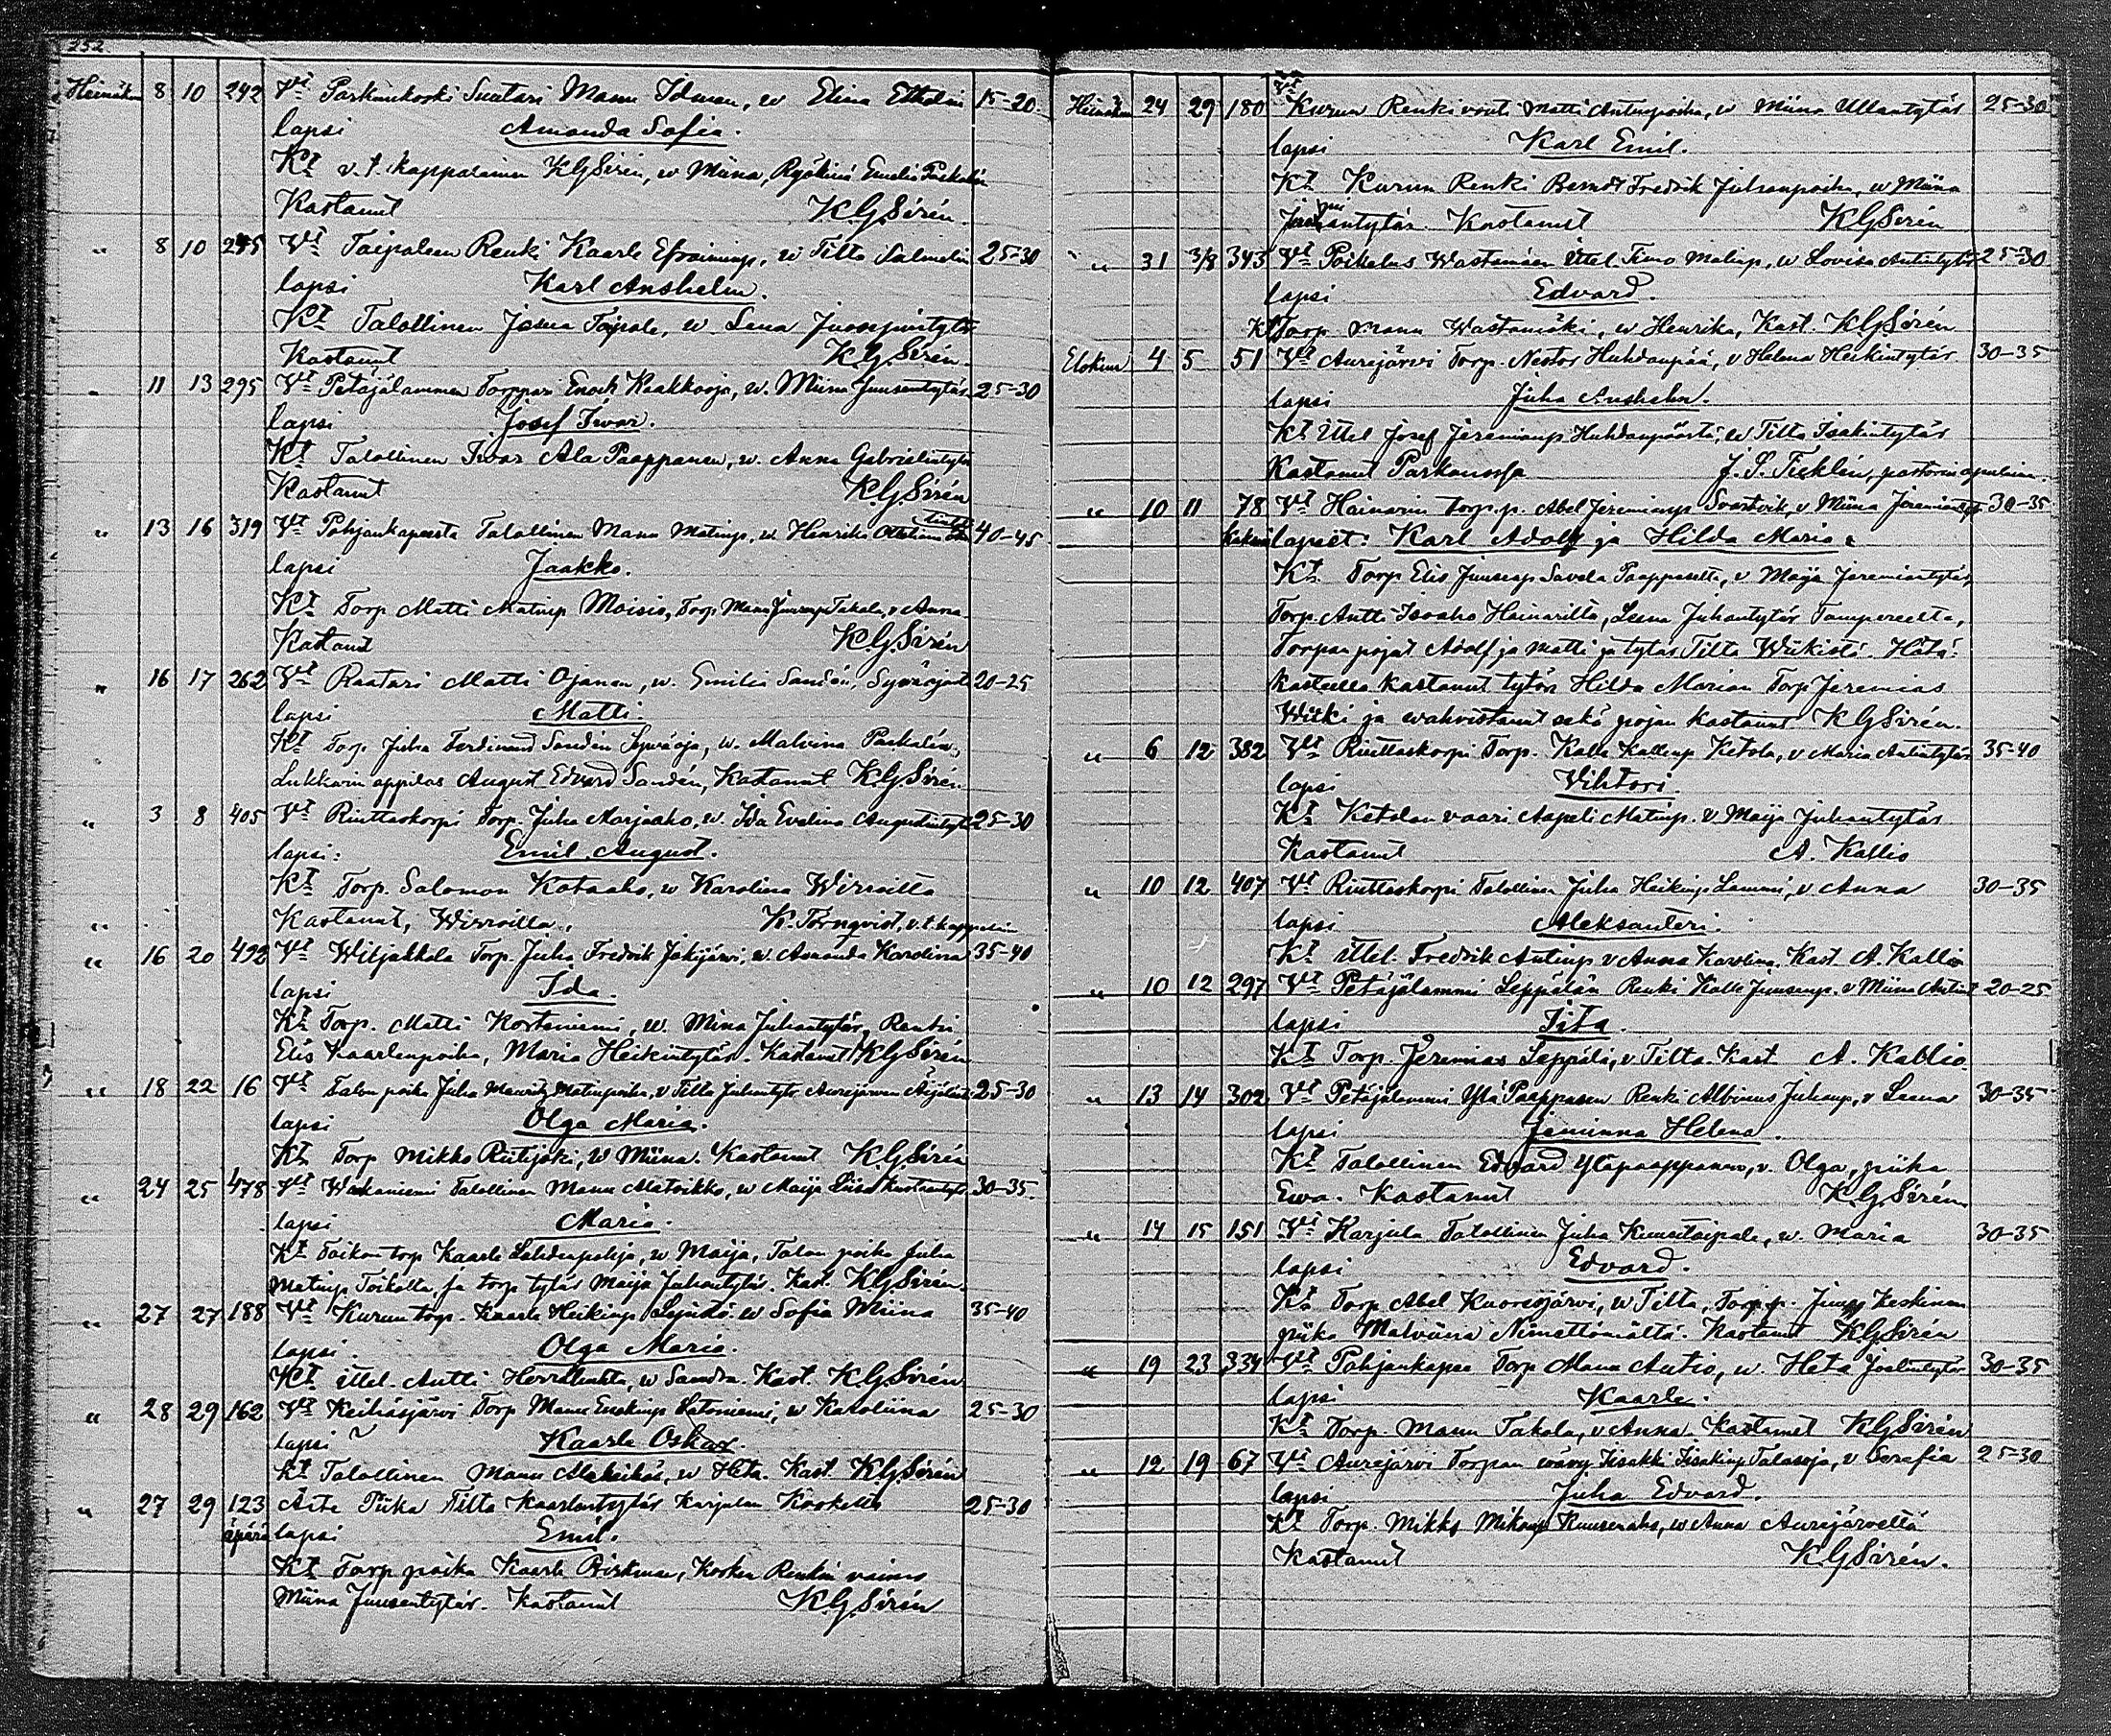 252
Heinäkuu 8 10 242 Vt Parkunkoski Suutari Manu Idman, w Elina Ekholm 15-20
lapsi Amanda Sofia.
Kt v. t. kappalainen KGSirén, w Miina, Emelia
Kastanut K.G.Sirén.
" 8 10 245 Vt Taipaleen Renki Kaarle Efraiminp, w Tilta Salmelin 25-30
lapsi Karl Anshelm.
Kt Talollinen Taipale, w Lena
Kastanut K.G.Sirén.
" 11 13 295 Vt Petäjälammen Torppari Enok Kaakkooja, w. Miina Juusentytär 25-30
lapsi Josef Iwar.
Kt Talollinen Iwar Ala Paappanen, w. Anna Gabrielintytär
Kastanut K.G.Sirén
" 13 16 319 Vt Pohjankapeesta Talollinen Manu Matinp, w. Henrika 40-45
lapsi Jaakko.
Kt Torp Matti Matinp Moisio, Torp. Manu Juusenp Takala, v Anna
Kastanut K.G.Sirén
" 16 17 262 Vt Raatari Matti Ojanen, w. Emilia Sandén, 20-25
lapsi Matti.
Kt Torp Juha Ferdinand Sandén Sywäoja, w. Malvina
Lukkarin oppilas August Edvard Sandén, Kastanut K.G.Sirén
" 3 8 405 Vt Riuttaskorpi Torp. Juha Marjaaho, w. Ida Evelina Augustintytär 25-30
lapsi: Emil August.
Kt Torp. Salomon Kataaho, w Karolina Wirroilta
Kastanut, Wirroilla, K. Törnqvist, v.t. kappalain
" 16 20 492 Vt Wiljakkala Torp. Juha Fredrik Jokijärwi, w. Amanda Karolina 35-40
lapsi Ida.
Kt Torp. Matti Kortaniemi, w. Mina Juhantytär, Renki
Elis Kaarlenpoika, Maria Heikintytär. Kastanut KGSirén
" 18 22 16 Vt Talon poika Juha Mauritz Matinpoika, v Tilta Juhantytär Aurejärwen 25-30
lapsi Olga Maria.
Kt Torp Mikko Riitijoki, w Miina. Kastanut K.G.Sirén
" 24 25 478 Vt Wakaniemi Talollinen Manu Matoikko, w Maija Liisa Kustaantytär 30-35.
lapsi Maria.
Kt Toikon torp Kaarle Lahdenpohja, w. Maija, Talon poika Juha
Matinp Toikolta, ja torp tytär Maija Juhantytär. Kast. K.G.Sirén.
" 27 27 188 Vt Kurun torp. Kaarle Heikinp w Sofia Miina 35-40
lapsi. Olga Maria.
Kt Ittel. Antti w Sandra. Kast. K.G.Sirén
" 28 29 162 Vt Keihäsjärvi Torp Manu Latoniemi, w Karoliina 25-30
lapsi Kaarle Oskar.
Kt Talollinen Manu w Heta. Kast. K.G.Sirén
" 27 29 123 Äite Piika Tilta Kaarlentytär Karjulan Koskelta 25-30
äpärä lapsi Emil.
Kt Torp poika Kaarle Birkman, Kosken Renkin vaimo
Miina Juusentytär. Kastanut K.G.Sirén
Heinäkuu 24 29 180 Vt Kurun Renki vouti Matti Antinpoika, w Miina Ullantytär 25-30
lapsi Karl Emil.
Kt Kurun Renki Berndt Fredrik Juhanpoika, w Miina
Kastanut K.G.Sirén
" 31 3/8 343 Vt Poikelus Wastamäen Ittel. Timo Matinp, w Lovisa Antintytär 25-30
lapsi Edvard.
Kt Torp Manu Wastamäki, w Henrika, Kast. K.G.Sirén
Elokuu 4 5 51 Vt Aurejärvi Torp. Nestor Huhdanpää, v Helena Heikintytär 30-35
lapsi Juha Anshelm.
Kt Ittel Josef Jeremianp Huhdanpäästä, w Tilta Isakintytär
Kastanut Parkanossa J. S. Ticklén, pastorin apulainen
" 10 11 78 Vt Hainarin torp.p. Abel Jeremianp Svartvik, v Miina Jeremiantyt 30-35
kaksoi lapset: Karl Adolf ja Hilda Maria.
Kt Torp Elis Juusenp Savela Paappaselta, v Maija Jeremiantytär,
Torp. Antti Isoaho Hainarilta, Leena Juhantytär Tampereelta,
Torpan pojat Adolf ja Matti ja tytär Tilta Wiikistä. Hätä
kasteella kastanut tytön Hilda Marian Torp Jeremias
Wiiki ja wahvistanut sekä pojan kastanut K.G.Sirén.
" 6 12 382 Vt Riuttaskorpi Torp. Kalle Kallenp Ketola, v Maria Antintytär 35-40
lapsi Wihtori.
Kt Ketolan vaari Aapeli Matinp. v Maija Juhantytär
Kastanut A. Kallio
" 10 12 407 Vt Riuttaskorpi Talollinen Juha Heikinp Lammi, v Anna 30-35
lapsi Aleksanteri.
Kt Ittel. Fredrik Antinp v Anna Karolina. Kast. A. Kallio
" 10 12 297 Vt Petäjälammi Leppälän Renki Kalle Juusenp. v Miina Antint 20-25
lapsi Iita.
Kt Torp. Jeremias Leppälä, v Tilta. Kast A. Kallio.
" 13 14 302 Vt Petäjälammi Ylä Paappasen Renki Albinus Juhanp, v Leena 30-35
lapsi Jeminna Helena.
Kt Talollinen Edvard Yläpaappanen, v. Olga, piika
Ewa. Kastanut K.G.Sirén
" 14 15 151 Vt Karjula Talollinen Juha Kuusitaipale, w. Maria 30-35
lapsi Edvard.
Kt Torp Abel Kuoresjärvi, w Tilta, Torp.p. Juusep Keskinen
piika Malviina Nimettömältä. Kastanut K.G.Sirén
" 19 23 334 Vt Pohjankapee Torp Manu Autio, w. Heta Joelintytär 30-35
lapsi Kaarle.
Kt Torp. Manu Takala, v Anna. Kastanut K.G.Sirén
" 12 19 67 Vt Aurejärvi Torpan vävy Iisakki Iisakinp Talasoja, v Serafia 25-30
lapsi Juha Edvard.
Kt Torp. Mikko Mikonp Kuusenaho, w Anna Aurejärveltä
Kastanut K.G.Sirén.